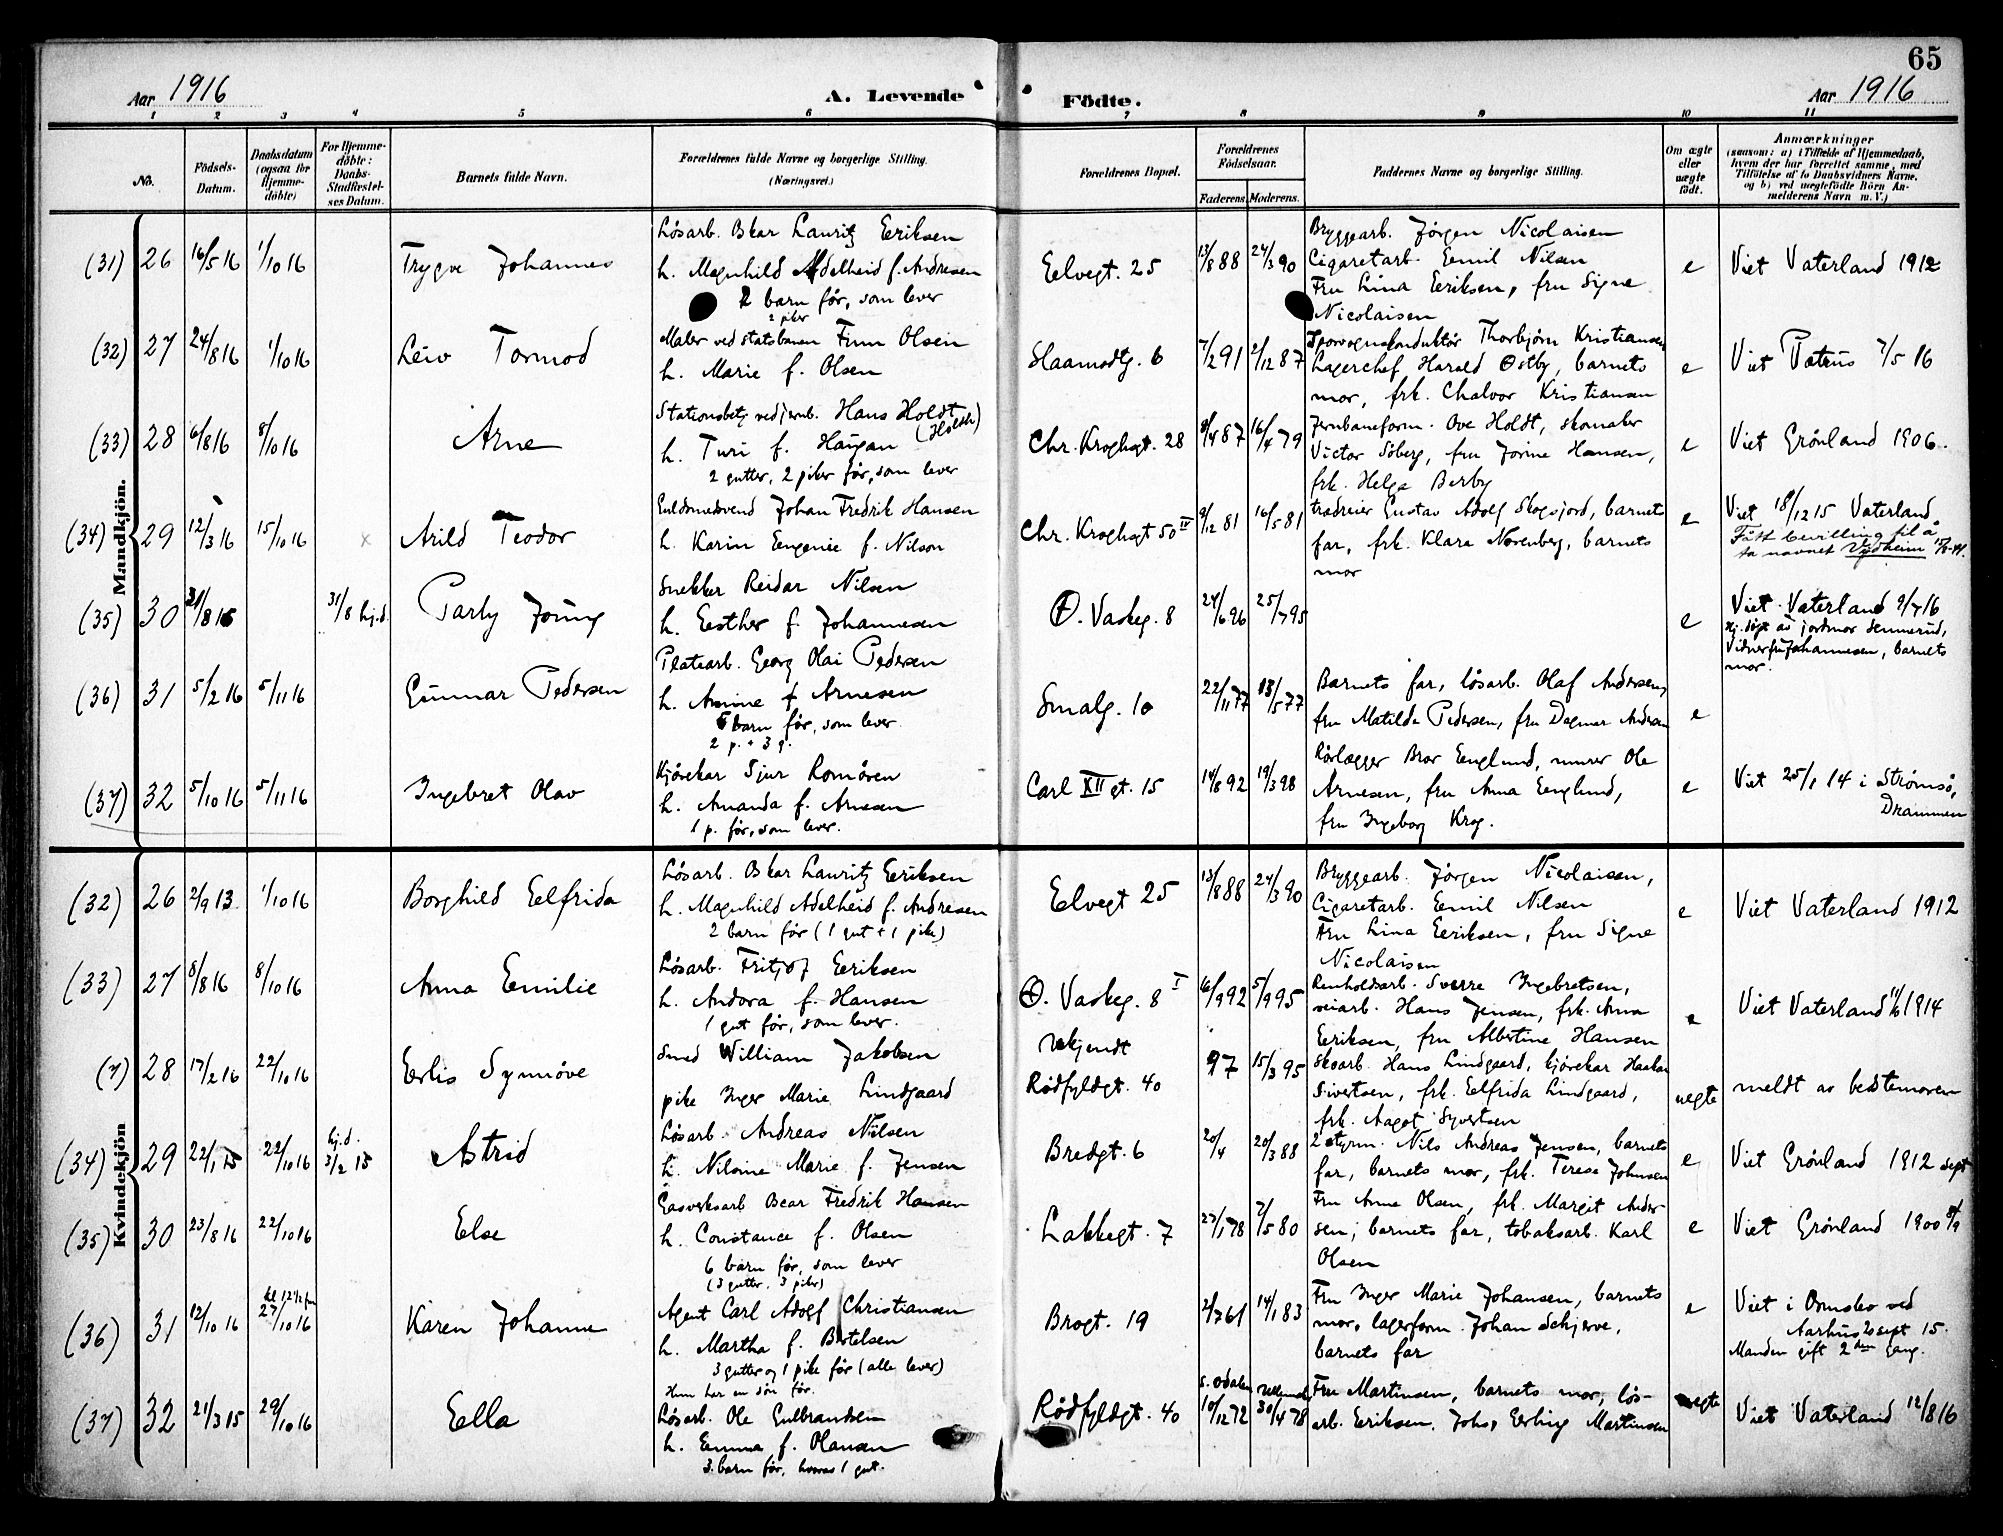 65
Aar 1916
A. Levende
Födte.
Aar 1916
1 2 3 4 5 6 7 8 9 10 11
No.
Födsels-Datum.
Daabsdatum (ogsaa for Hjemme-döbte)
For Hjemme-döbte: Daabs-Stadfæstel-ses Datum.
Barnets fulde Navn.
Forældrenes fulde Navne og borgerlige Stilling. (Næringsvei.)
Forældrenes Bopæl.
Forældrenes Födselsaar.
Faderens Moderens.
Faddernes Navne og borgerlige Stilling.
Om ægte eller uægte födt.
Anmærkninger
(saasom: a) i Tilfælde af Hjemmedaab,
hvem der har forrettet samme, med
Tilföielse af to Daabsvidners Navne,
og b) ved uægtefödte Börn An-
melderens Navn m. V.)
Mandkjön.
(31) 26 16/5 16 1/10 16 Trygve Johannes
Løsarb. Oskar Lauritz Eriksen
h. Magnhild Adelheid f. Andresen
2 barn før, som lever
2 piker
Elvegt. 25 13/8 88 24/3 90
Bryggearb. Jørgen Nicolaisen
Cigaretarb. Emil Nilsen
Fru Lina Eriksen, fru Signe
Nicolaisen
e Viet Vaterland 1912
(32) 27 24/8 16 1/10 16 Leiv Tormod
Maler ved statsbanen Finn Olsen
h. Marie f. Olsen
Slaamodtg. 6 7/2 91 2/12 87
Sporvognskonduktør Thorbjørn Kristiansen
Lagerchef Harald Østby, barnets
mor, frk. Chalvor Kristiansen
e Viet Petrus 7/5 16
(33) 28 6/8 16 8/10 16 Arne
Stationsbetj. ved jernb. Hans Holdt
h. Turi f. Haugan
2 gutter, 2 piker før, som lever
Chr. Kroghsgt. 28 8/4 87 16/4 79
Jernbaneform. Ove Holdt, skomaker
Victor Søberg, fru Jorine Hansen,
frk. Helga Berby
e Viet Grønland 1906.
(34) 29 12/3 16 15/10 16 x Arild Teodor
Guldsmedsvend Johan Fredrik Hansen
h. Karin Eugenie f. Nilson
Chr. Kroghsgt 50 III 9/12 81 16/5 81
trædreier Gustav Adolf Skogsfjord, barnets
far, frk. Klara Norenberg, barnets
mor
e Viet 18/12 15 Vaterland
Fått bevilling til å
ta navnet
(35) 30 31/8 16 31/8 hj.d. Parly Joung
Snekker Reidar Nilsen
h. Esther f. Johannesen
Ø. Vaskeg. 8 24/6 96 25/7 95
e Viet Vaterland 9/7 16
Hj. døpt av jordmor Sennerud,
Vidner fru Johannesen, barnets
mor.
(36) 31 5/2 16 5/11 16 Gunnar Pedersen
Platearb. Georg Olai Pedersen
h. Annine f. Arnesen
5 barn før, som lever
2 p. + 3 g.
Smalg. 10 22/11 77 13/5 77
Barnets far, løsarb. Olaf Andersen,
fru Matilde Pedersen, fru Dagmar Andersen
e
(37) 32 5/10 16 5/11 16 Ingebret Olav
Kjørekar Sjur Romøren
h. Amanda f. Arnesen
1 p. før, som lever.
Carl XII gt. 15 14/8 92 19/3 98
Rørlægger Bror Englund, murer Ole
Arnesen, fru Anna Englund,
fru Ingeborg Krog.
e Viet 25/1 14 i Strømsø,
Drammen
Kvindekjön
(32) 26 2/9 13. 1/10 16 Borghild Elfrida
Løsarb. Oskar Lauritz Eriksen
h. Magnhild Adelheid f. Andresen
2 barn før (1 gut + 1 pike)
Elvegt 25 13/8 88 24/3 90
Bryggearb. Jørgen Nicolaisen,
Cigaretarb. Emil Nilsen
Fru Lina Eriksen, fru Signe
Nicolaisen
e Viet Vaterland 1912
(33) 27 8/8 16 8/10 16 Anna Emilie
Løsarb. Fritjof Eriksen
h. Andora f. Hansen
1 gut før, som lever.
Ø. Vaskeg. 8 I 16/9 92 5/9 95
Renholdsarb. Sverre Ingebretsen,
veiarb. Hans Jensen, frk. Anna
Eriksen, fru Albertine Hansen
e Viet Vaterland 1914
(7) 28 17/2 16 22/10 16 Erlis Synnøve
Smed William Jakobsen
pike Inger Marie Lindgaard
Ukjendt
Rødfyldgt. 40 97 15/3 95
Skoarb. Hans Lindgaard, kjørekar Haakon
Sivertsen, frk. Elfrida Lindgaard,
frk. Aagot Syvertsen
uegte meldt av bestemoren
(34) 29 22/1 15 22/10 16 hj.d. 3/2 15 Astrid
Løsarb. Andreas Nilsen
h. Nilsine Marie f. Jensen
Bredgt. 6 20/4 20/3 88
2 styrm. Nils Andreas Jensen, barnets
far, barnets mor, frk. Terese Johnsen
e Viet Grønland 1912 sept
(35) 30 23/8 16 22/10 16 Else
Gasverksarb Oscar Fredrik Hansen
h. Constance f. Olsen
6 barn før, som lever
(3 gutter, 3 piker)
Lakkegt. 7 27/1 78 7/5 80
Fru Anne Olsen, frk. Margit Ander-
sen, barnets far, tobaksarb. Karl
Olsen
e Viet Grønland 1900
(36) 31 12/10 16 kl 12 1/2 fm 27/10 16 Karen Johanne
Agent Carl Adolf Christiansen
h. Martha f. Bertelsen
3 gutter og 1 pike før (alle lever)
Brogt. 19 2/7 61 14/1 83
Fru Inger Marie Johansen, barnets
mor, lagerform. Johan Schjerve,
barnets far
e Viet i Ormslev ved
Aarhus 20 sept 15.
Manden gift 2den gang.
(37) 32 21/3 15 29/10 16 Ella
Hun har en søn før.
Løsarb. Ole Gulbrandsen
h. Emma f. Olausen
3 barn før, hvorav 1 gut.
Rødfyldgt. 40 S. Odalen 10/12 72 30/4 78
Fru Martinsen, barnets mor, løs-
arb. Eriksen, Johs, Erling Martinsen
uegte Viet Vaterland 12/8 16